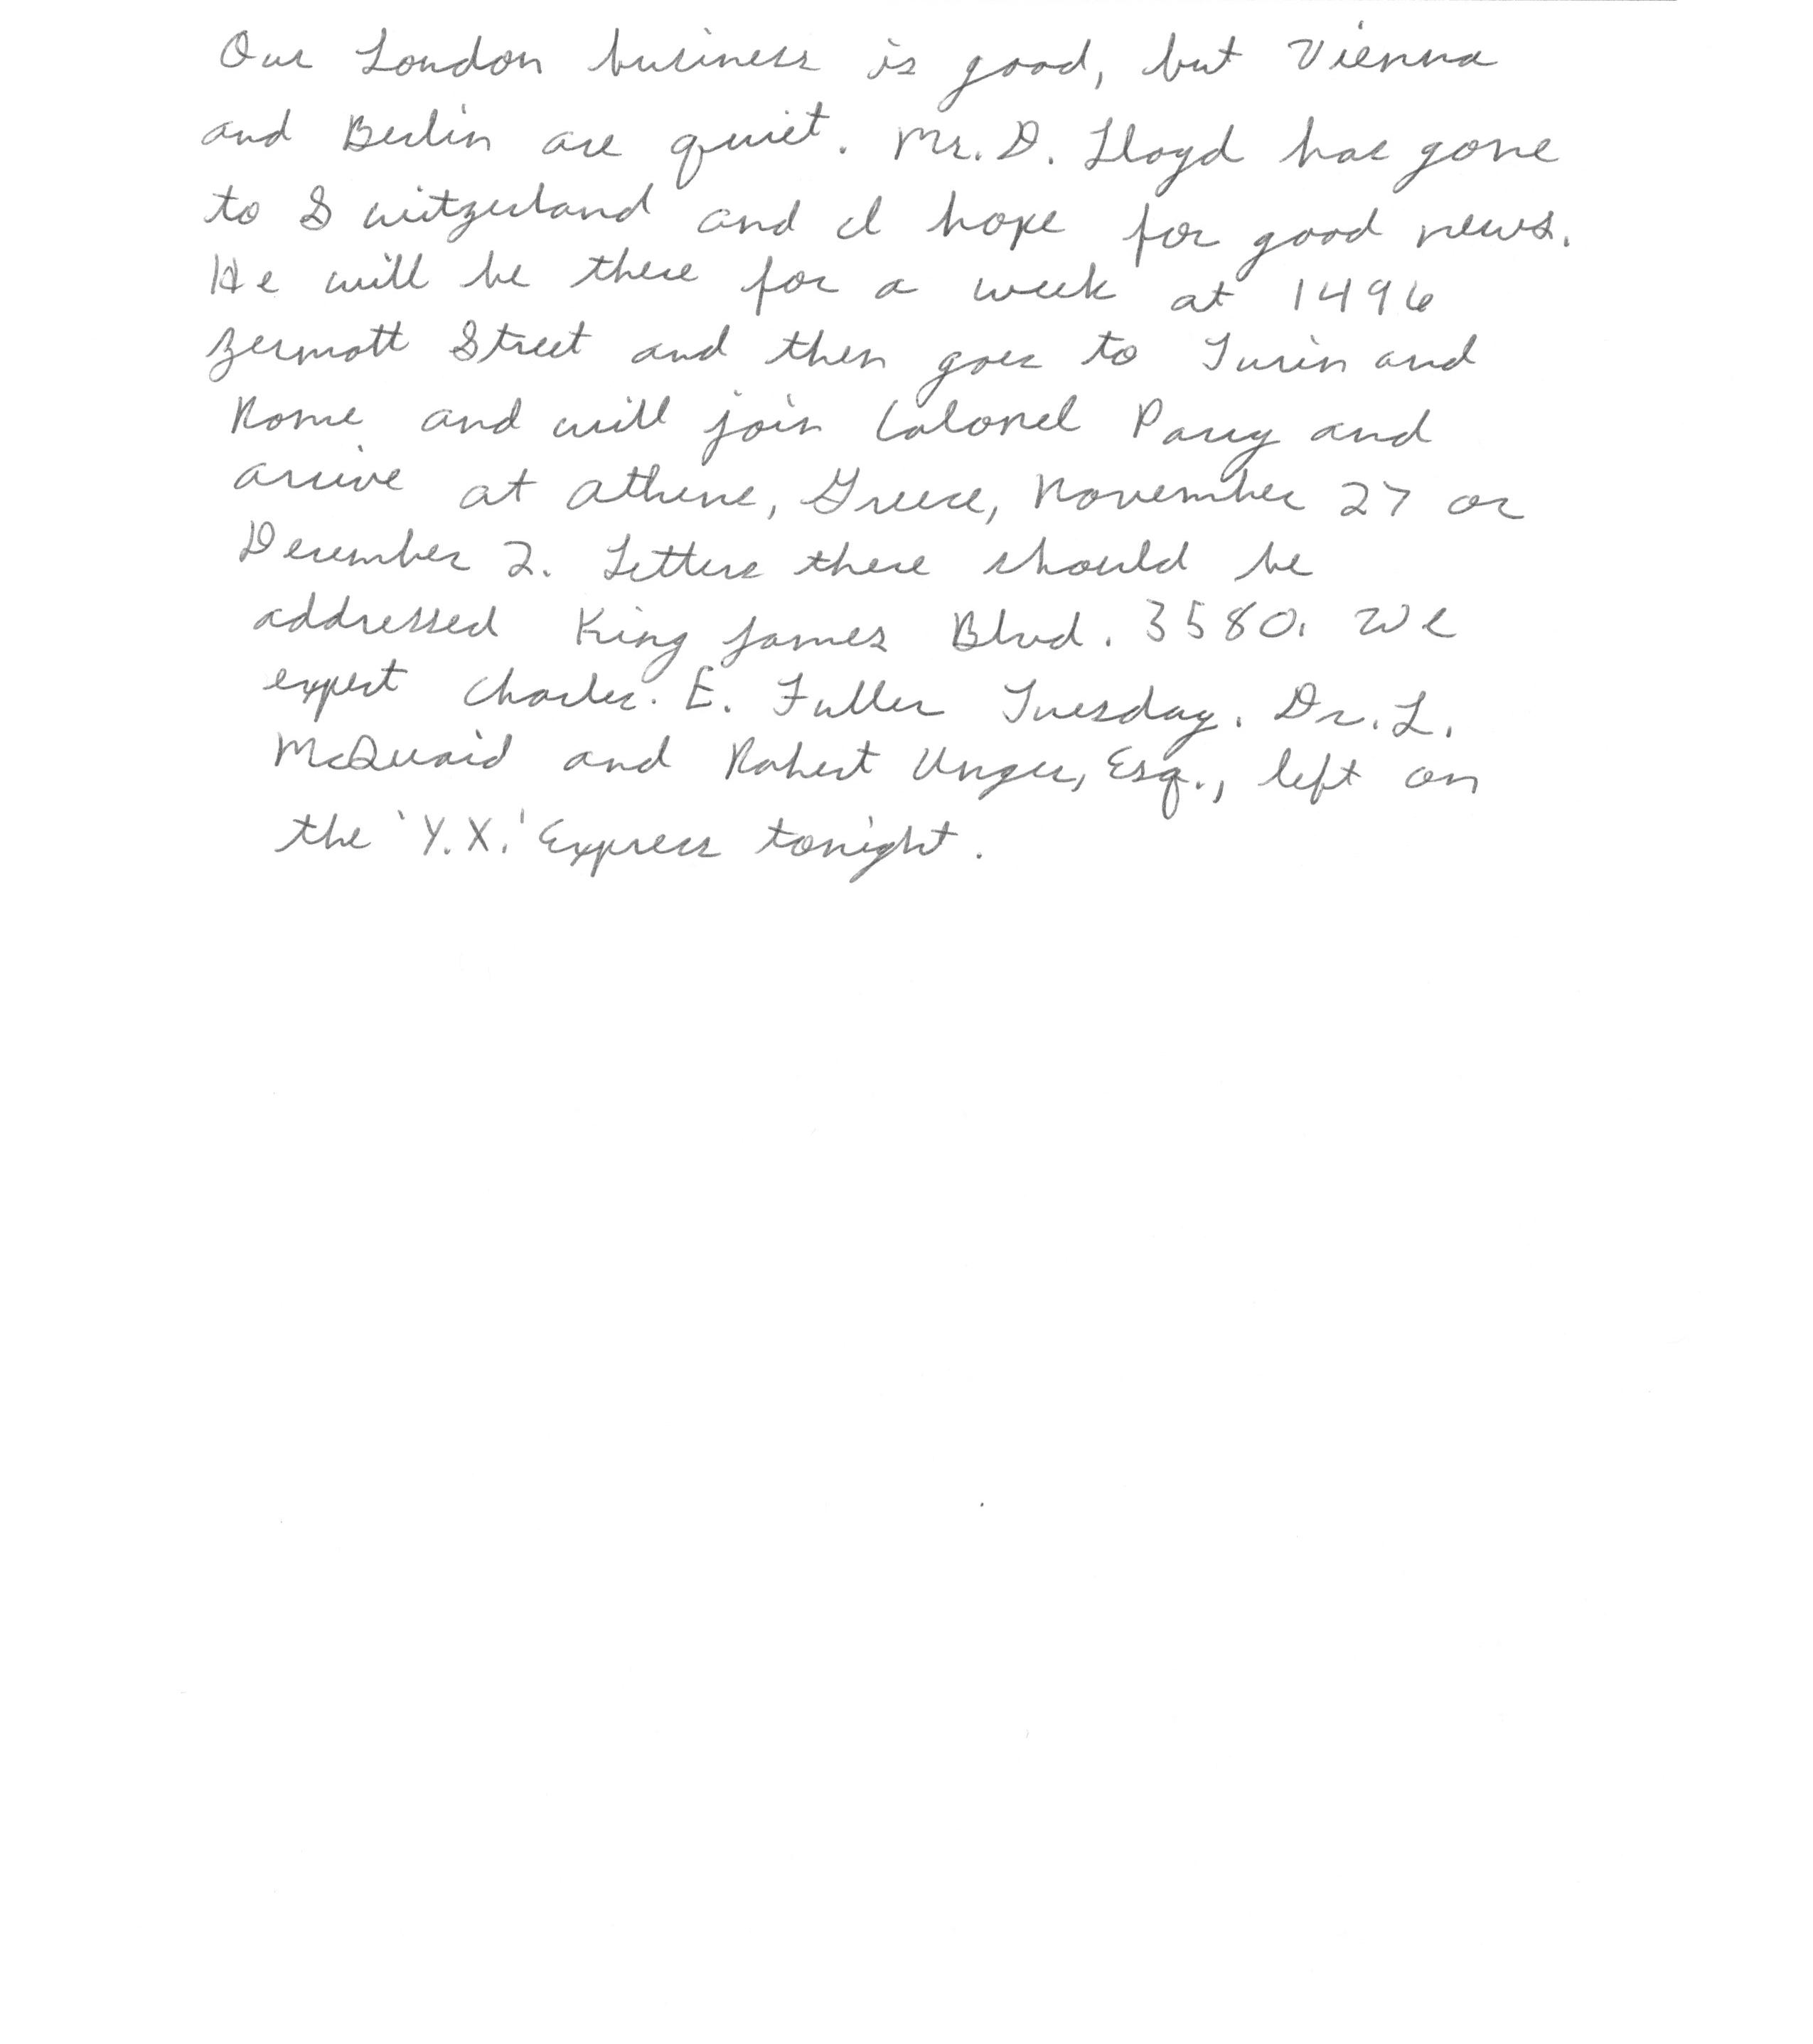 Our London business is good, but Vienna
and Berlin are quiet. Mr. D. Lloyd has gone
to Switzerland and I hope for good news.
He will be there for a week at 1496
Zermott Street and then goes to Turin and
Rome and will join Colonel Parry and
arrive at Athens, Greece, November 27 or
December 2. Letters there should be
addressed King James Blvd. 3580. We
expect Charles. E. Fuller Tuesday. Dr. L.
McQuaid and Robert Unger, Esq., left on
the 'Y.X.' Express tonight.